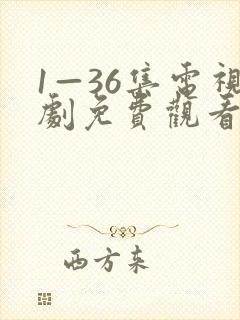 1—36集電視
劇免費觀看
西方来